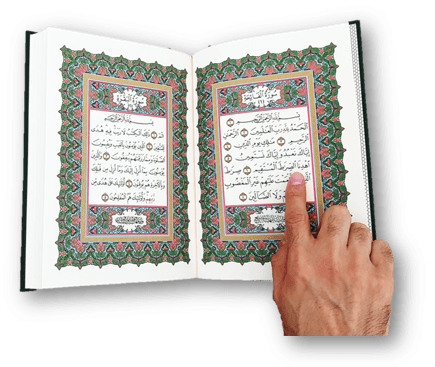 سُورَةُ الفَاتِحَةِ
بِسْمِ ٱللَّهِ ٱلرَّحْمَٰنِ ٱلرَّحِيمِ
ٱلْحَمْدُ لِلَّهِ رَبِّ ٱلْعَٰلَمِينَ ٱلرَّحْمَٰنِ
ٱلرَّحِيمِ مَٰلِكِ يَوْمِ ٱلدِّينِ
إِيَّاكَ نَعْبُدُ وَإِيَّاكَ نَسْتَعِينُ
ٱهْدِنَا ٱلصِّرَٰطَ ٱلْمُسْتَقِيمَ صِرَٰطَ
ٱلَّذِينَ أَنْعَمْتَ عَلَيْهِمْ غَيْرِ ٱلْمَغْضُوبِ
عَلَيْهِمْ وَلَا ٱلضَّآلِّينَ
سُورَةُ البَقَرَةِ
بِسْمِ ٱللَّهِ ٱلرَّحْمَٰنِ ٱلرَّحِيمِ
الٓمٓ ذَٰلِكَ ٱلْكِتَٰبُ لَا رَيْبَ فِيهِ هُدًى
لِّلْمُتَّقِينَ ٱلَّذِينَ يُؤْمِنُونَ بِٱلْغَيْبِ وَيُقِيمُونَ
ٱلصَّلَوٰةَ وَمِمَّا رَزَقْنَٰهُمْ يُنفِقُونَ وَٱلَّذِينَ
يُؤْمِنُونَ بِمَآ أُنزِلَ إِلَيْكَ وَمَآ أُنزِلَ مِن قَبْلِكَ
وَبِٱلْءَاخِرَةِ هُمْ يُوقِنُونَ أُو۟لَٰٓئِكَ عَلَىٰ هُدًى مِّن
رَّبِّهِمْ وَأُو۟لَٰٓئِكَ هُمُ ٱلْمُفْلِحُونَ